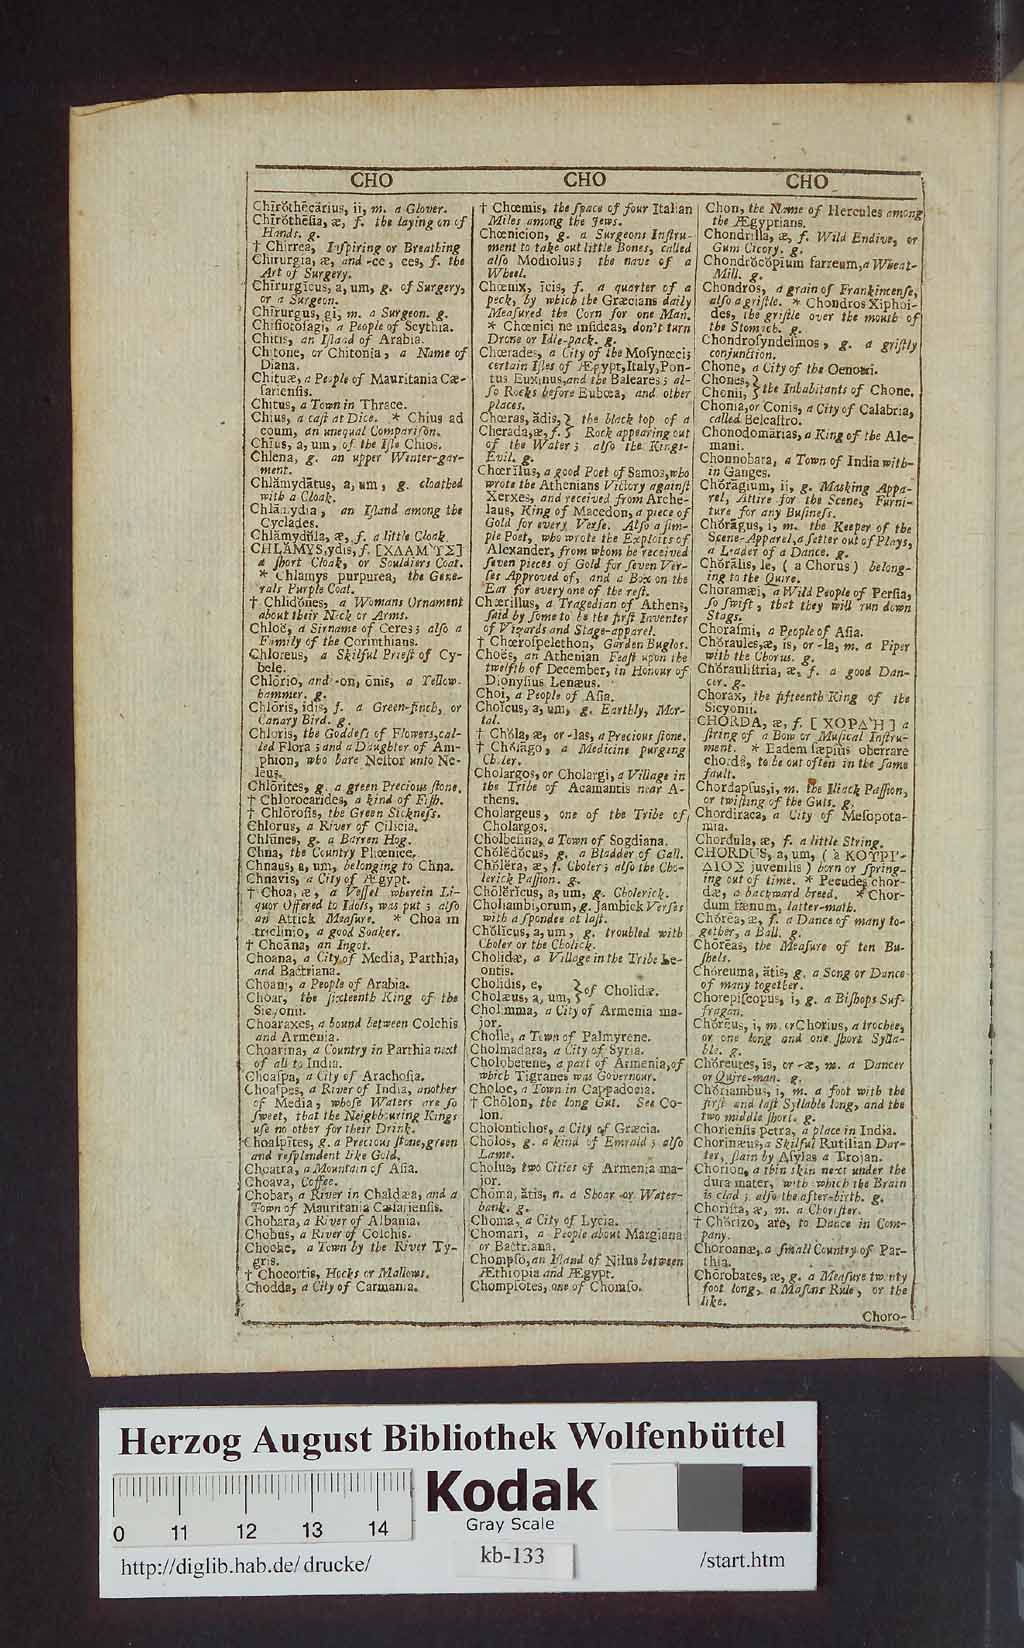 CHO
Chīrŏthēcārius, ii, m. a Glover.
Chīrŏthĕſia, æ, f. the laying on of
Hands. g.
† Chirrea, Inſpiring or Breathing
Chīrurgia, æ, and -ce, ces, f. the
Art of Surgery.
Chīrurgĭcus, a, um, g. of Surgery,
or a Surgeon.
Chīrurgus, gi, m. a Surgeon. g.
Chiſiotoſagi, a People of Scythia.
Chitis, an Iſland of Arabia.
Chitone, or Chitonia, a Name of
Diana.
Chituæ, a People of Mauritania Cæ-
ſarienſis.
Chitus, a Town in Thrace.
Chius, a caſt at Dice. * Chius ad
coum, an unequal Compariſon.
Chīus, a, um, of the Iſle Chios.
Chlena, g. an upper Winter-gar-
ment.
Chlămydātus, a, um, g. cloathed
with a Cloak.
Chlămydia, an Iſland among the
Cyclades.
Chlămydŭla, æ, f. a little Cloak.
CHLAMYS, ydis, f. [ΧΛΑΜΎΣ]
a ſhort Cloak, or Souldiers Coat.
* Chlamys purpurea, the Gene-
rals Purple Coat.
† Chlidŏnes, a Womans Ornament
about their Neck or Arms.
Chloē, a Sirname of Ceres; alſo a
Family of the Corinthians.
Chloreus, a Skilful Prieſt of Cy-
bele.
Chlōrio, and -on, ōnis, a Yellow-
hammer. g.
Chlōris, idis, f. a Green-finch, or
Canary Bird. g.
Chloris, the Goddeſs of Flowers, cal-
led Flora; and a Daughter of Am-
phion, who bare Neſtor unto Ne-
leus.
Chlōrites, g. a green Precious ſtone.
† Chlorocarides, a kind of Fiſh.
† Chlōroſis, the Green Sickneſs.
Chlorus, a River of Cilicia.
Chlūnes, g. a Barren Hog.
Chna, the Country Phœnice.
Chnaus, a, um, belonging to Chna.
Chnavis, a City of Ægypt.
† Choa, æ, a Veſſel wherein Li-
quor Offered to Idols, was put; alſo
an Attick Meaſure. * Choa in
triclinio, a good Soaker.
† Choăna, an Ingot.
Choana, a City of Media, Parthia,
and Bactriana.
Choani, a People of Arabia.
Choar, the ſixteenth King of the
Sicyonii.
Choaraxes, a bound between Colchis
and Armenia.
Choarina, a Country in Parthia next
of all to India.
Choaſpa, a City of Arachoſia.
Choaſpes, a River of India, another
of Media, whoſe Waters are ſo
ſweet, that the Neighbouring Kings
uſe no other for their Drink.
Choaſpītes, g. a Precious ſtone, green
and reſplendent like Gold.
Choatra, a Mountain of Aſia.
Choava, Coffee.
Chobar, a River in Chaldæa, and a
Town of Mauritania Cæſarienſis.
Chobara, a River of Albania.
Chobus, a River of Colchis.
Choche, a Town by the River Ty-
gris.
† Chocortis, Hocks or Mallows.
Chodda, a City of Carmania.
CHO
† Chœmis, the ſpace of four Italian
Miles among the Jews.
Chœnicion, g. a Surgeons Inſtru-
ment to take out little Bones, called
alſo Modiolus; the nave of a
Wheel.
Chœnix, ĭcis, f. a quarter of a
peck, by which the Græcians daily
Meaſured the Corn for one Man.
* Chœnici ne inſideas, don't turn
Drone or Idle-pack. g.
Chœrades, a City of the Moſynœci;
certain Iſles of Ægypt, Italy, Pon-
tus Euxinus, and the Baleares; al-
ſo Rocks before Eubœa, and other
places.
Chœras, ădis, } the black top of a
Cherada, æ, f. } Rock appearing out
of the Water; alſo the Kings-
Evil. g.
Chœrĭlus, a good Poet of Samos, who
wrote the Athenians Victory againſt
Xerxes, and received from Arche-
laus, King of Macedon, a piece of
Gold for every Verſe. Alſo a ſim-
ple Poet, who wrote the Exploits of
Alexander, from whom he received
ſeven pieces of Gold for ſeven Ver-
ſes Approved of, and a Box on the
Ear for every one of the reſt.
Chœrillus, a Tragedian of Athens,
ſaid by ſome to be the firſt Inventer
of Vizards and Stage-apparel.
† Chœroſpelethon, Garden Bugloſs.
Choës, an Athenian Feaſt upon the
twelfth of December, in Honour of
Dionyſius Lenæus.
Choi, a People of Aſia.
Choĭcus, a, um, g. Earthly, Mor-
tal.
† Chŏla, æ, or -las, a Precious ſtone.
† Chŏlăgo, a Medicine purging
Choler.
Cholargos, or Cholargi, a Village in
the Tribe of Acamantis near A-
thens.
Cholargeus, one of the Tribe of
Cholargos.
Cholbeſina, a Town of Sogdiana.
Chŏlēdŏcus, g. a Bladder of Gall.
Chŏlĕra, æ, f. Choler; alſo the Cho-
lerick Paſſion. g.
Chŏlĕricus, a, um, g. Cholerick.
Choliambi, orum, g. Jambick Verſes
with a ſpondee at laſt.
Chŏlĭcus, a, um, g. troubled with
Choler or the Cholick.
Cholidæ, a Village in the Tribe Le-
ontis.
Cholidis, e, } of Cholidæ.
Cholæus, a, um, }
Cholimma, a City of Armenia ma-
jor.
Cholle, a Town of Palmyrene.
Cholmadara, a City of Syria.
Choloberene, a part of Armenia, of
which Tigranes was Governour.
Choloe, a Town in Cappadocia.
† Chŏlon, the long Gut. See Co-
lon.
Cholontichos, a City of Græcia.
Chŏlos, g. a kind of Emrald; alſo
Lame.
Cholua, two Cities of Armenia ma-
jor.
Chōma, ătis, n. a Shoar or Water-
bank. g.
Choma, a City of Lycia.
Chomari, a People about Margiana
or Bactriana.
Chompſo, an Iſland of Nilus between
Æthiopia and Ægypt.
Chomplotes, one of Chomſo.
CHO
Chon, the Name of Hercules among
the Ægyptians.
Chondrilla, æ, f. Wild Endive, or
Gum Cicory. g.
Chondrŏcŏpium farreum, a Wheat-
Mill. g.
Chondros, a grain of Frankincenſe,
alſo a griſtle. * Chondros Xiphoi-
des, the griſtle over the mouth of
the Stomach. g.
Chondroſyndeſmos, g. a griſtly
conjunction.
Chone, a City of the Oenotri.
Chones, } the Inhabitants of Chone.
Chonii, }
Chonia, or Conis, a City of Calabria,
called Belcaſtro.
Chonodomarias, a King of the Ale-
mani.
Chonnobara, a Town of India with-
in Ganges.
Chŏrāgium, ii, g. Masking Appa-
rel, Attire for the Scene, Furni-
ture for any Buſineſs.
Chŏrāgus, i, m. the Keeper of the
Scene-Apparel, a ſetter out of Plays,
a Leader of a Dance. g.
Chŏrālis, le, ( a Chorus ) belong-
ing to the Quire.
Choramæi, a Wild People of Perſia,
ſo ſwift, that they will run down
Stags.
Choraſmi, a People of Aſia.
Chŏraules, æ, is, or -la, m. a Piper
with the Chorus. g.
Chŏrauliſtria, æ, f. a good Dan-
cer. g.
Chorax, the fifteenth King of the
Sicyonii.
CHORDA, æ, f. [ ΧΟΡΔΉ ] a
ſtring of a Bow or Muſical Inſtru-
ment. * Eadem ſæpiùs oberrare
chordâ, to be out often in the ſame
fault.
Chordapſus, i, m. the Iliack Paſſion,
or twiſting of the Guts. g.
Chordiraca, a City of Meſopota-
mia.
Chordula, æ, f. a little String.
CHORDUS, a, um, ( à ΚΟΥΡΊ-
ΔΙΟΣ juvenilis ) born or ſpring-
ing out of time. * Pecudes chor-
dæ, a backward breed. * Chor-
dum fœnum, latter-math.
Chŏrēa, æ, f. a Dance of many to-
gether, a Ball. g.
Chŏrēas, the Meaſure of ten Bu-
ſhels.
Chŏreuma, ătis, g. a Song or Dance
of many together.
Chorepiſcopus, i, g. a Biſhops Suf-
fragan.
Chŏrēus, i, m. or Chorius, a trochee,
or one long and one ſhort Sylla-
ble. g.
Chŏreutes, is, or -æ, m. a Dancer
or Quire-man. g.
Chŏriambus, i, m. a foot with the
firſt and laſt Syllable long, and the
two middle ſhort. g.
Chorienſis petra, a place in India.
Chorinæus, a Skilful Rutilian Dar-
ter, ſlain by Aſylas a Trojan.
Chorion, a thin skin next under the
dura mater, with which the Brain
is clad; alſo the after-birth. g.
Choriſta, æ, m. a Choriſter.
† Chŏrīzo, are, to Dance in Com-
pany.
Choroanæ, a ſmall Country of Par-
thia.
Chōrobates, æ, g. a Meaſure twenty
foot long, a Maſons Rule, or the
like.
Choro-
Herzog August Bibliothek Wolfenbüttel
Kodak
Gray Scale
0 11 12 13 14
http://diglib.hab.de/drucke/
kb-133
/start.htm